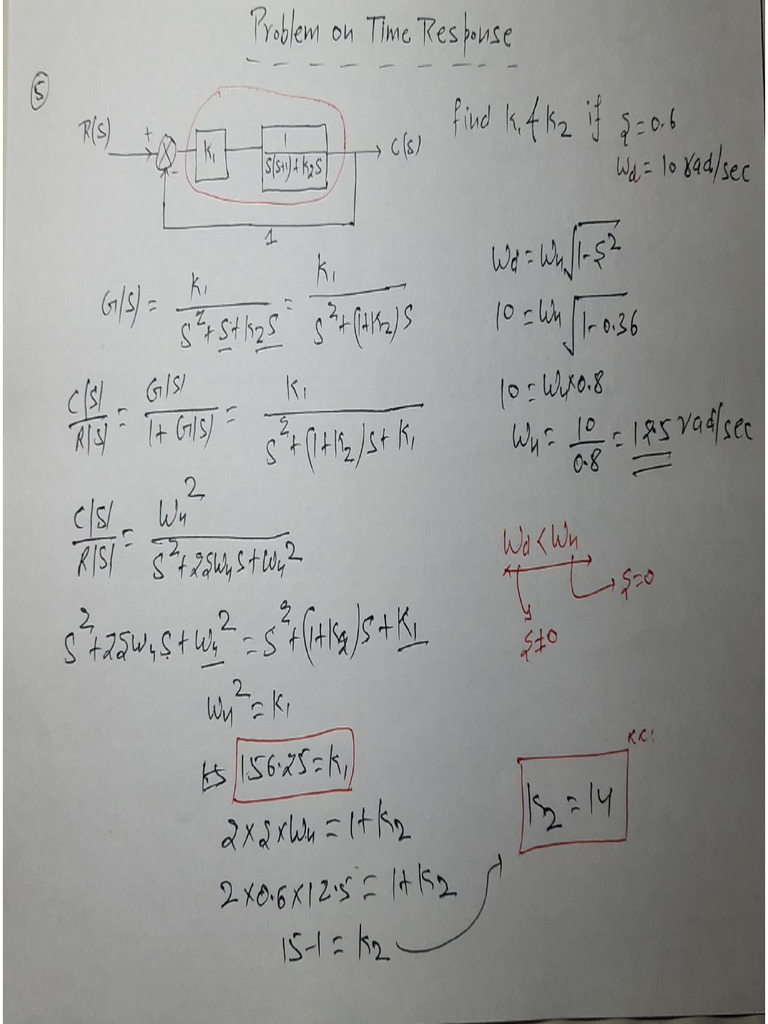 Problem on Time Response
⑤
R(s) + - K₁ 1/(s(s+1)+K₂s) C(s)
1
find K₁ & K₂ if ξ=0.6
ωd = 10 rad/sec
G(s) = K₁/(s²+s+K₂s) = K₁/(s²+(1+K₂)s)
C(s)/R(s) = G(s)/(1+G(s)) = K₁/(s²+(1+K₂)s+K₁)
C(s)/R(s) = ωn²/(s²+2ξωns+ωn²)
s²+2ξωns+ωn² = s²+(1+K₂)s+K₁
ωn² = K₁
156.25 = K₁
2×ξ×ωn = 1+K₂
2×0.6×12.5 = 1+K₂
15-1 = K₂
ωd = ωn√(1-ξ²)
10 = ωn√(1-0.36)
10 = ωn×0.8
ωn = 10/0.8 = 12.5 rad/sec
ωd < ωn
ξ=0
ξ≠0
K₂ = 14